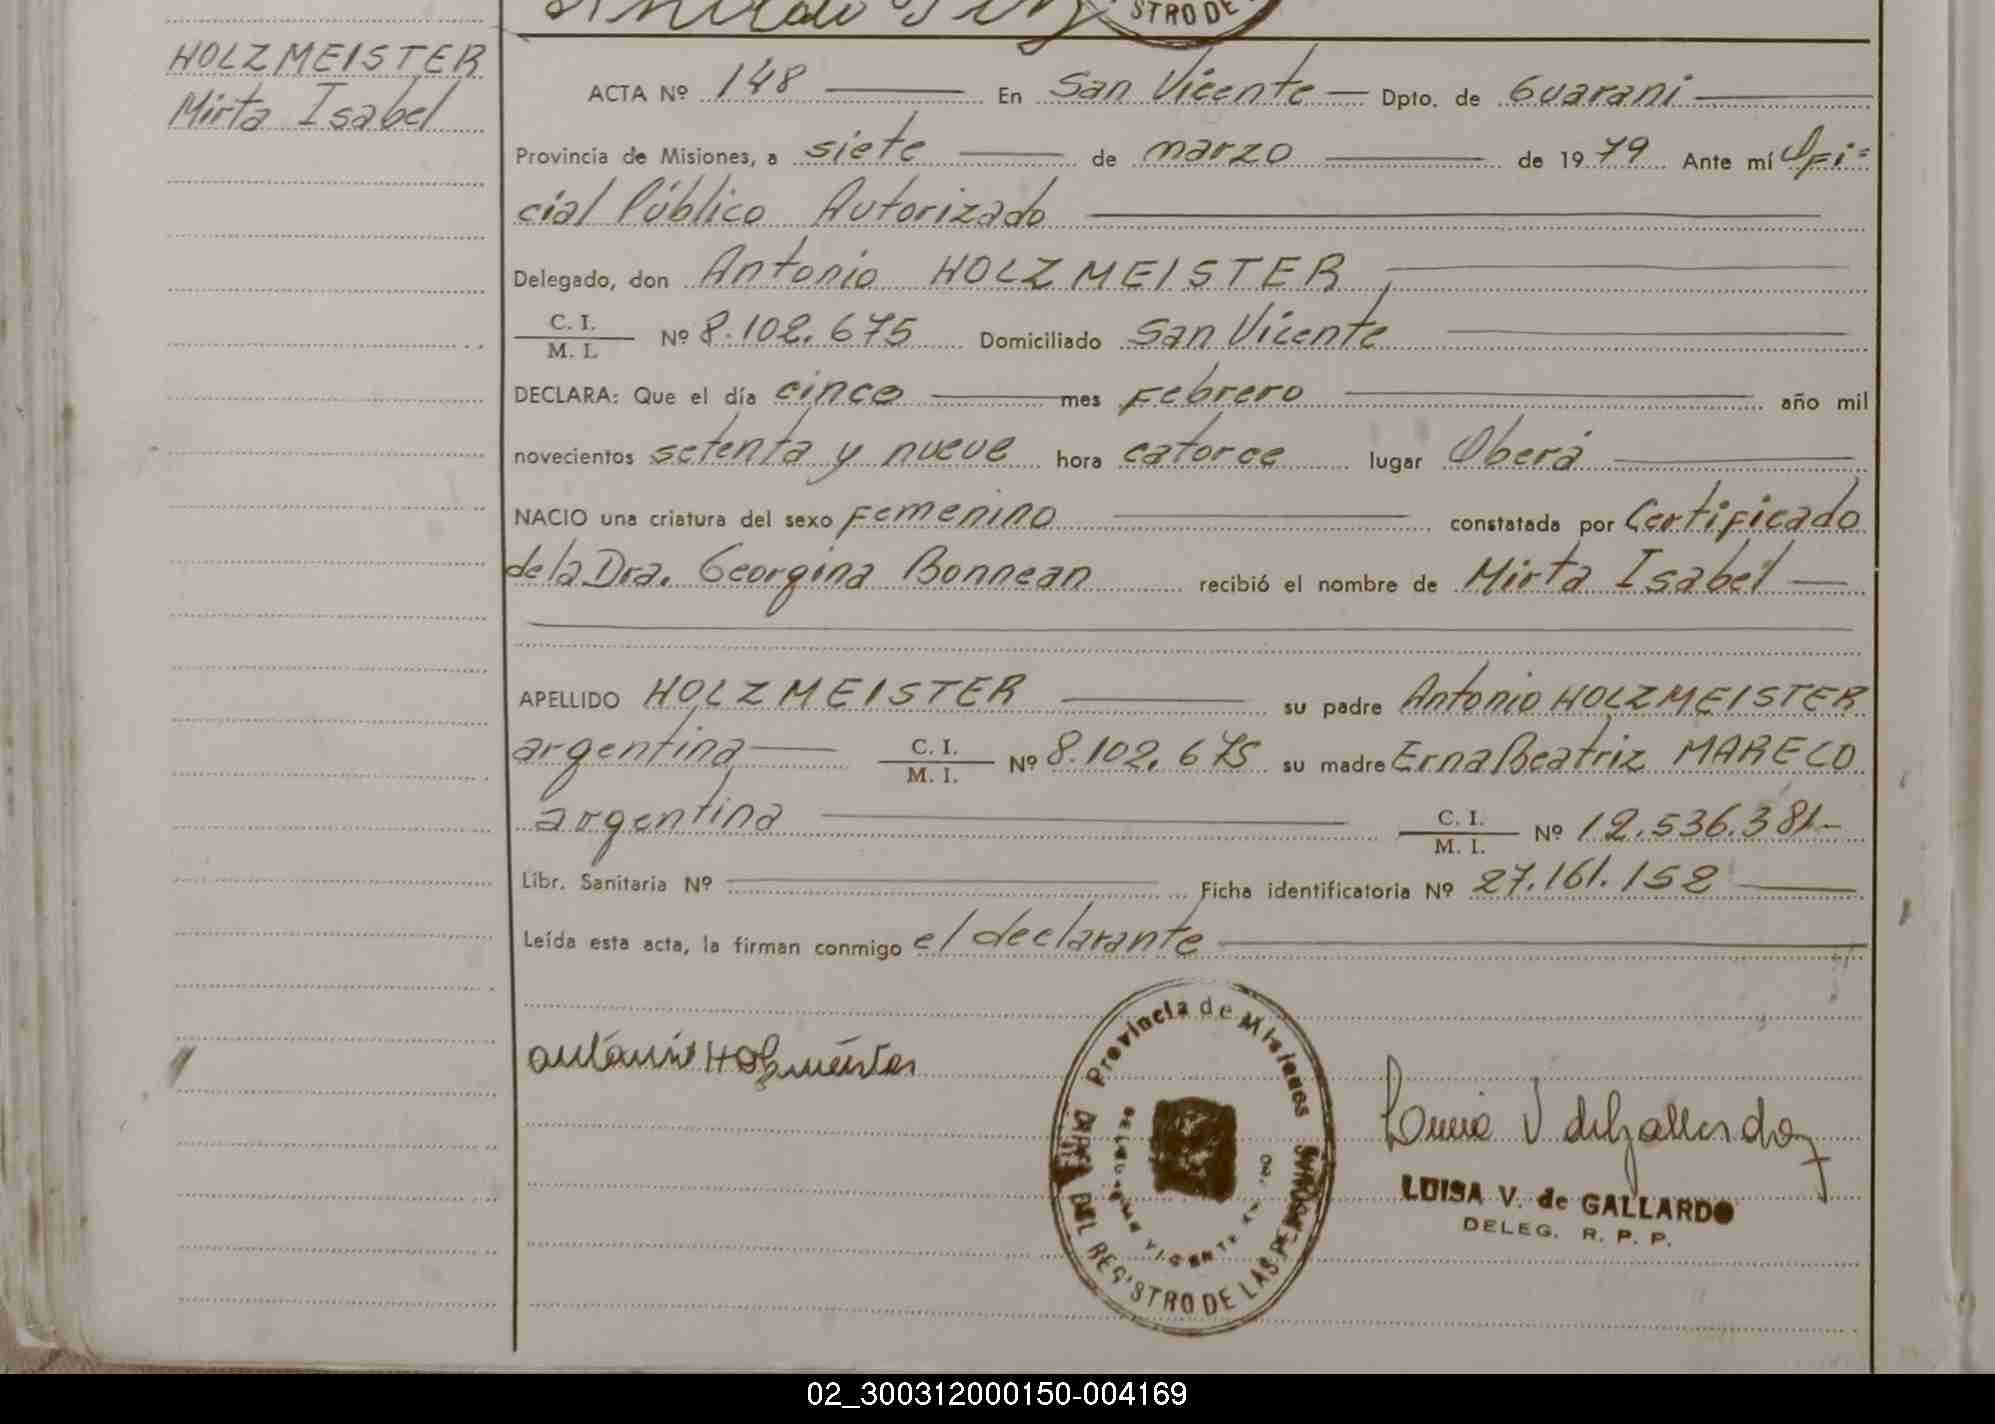 STRO DE
HOLZMEISTER
Mirta Isabel
ACTA Nº 148 En San Vicente Dpto. de Guaraní
Provincia de Misiones, a siete de marzo de 1979 Ante mí Ofi=
cial Público Autorizado
Delegado, don Antonio HOLZMEISTER
C. I.
M. I. Nº 8.102.675 Domiciliado San Vicente
DECLARA: Que el día cinco mes Febrero año mil
novecientos setenta y nueve hora catorce lugar Oberá
NACIO una criatura del sexo Femenino constatada por Certificado
de la Dra. Georgina Bonnean recibió el nombre de Mirta Isabel
APELLIDO HOLZMEISTER su padre Antonio HOLZMEISTER
argentina C. I.
M. I. Nº 8.102.675 su madre Erna Beatriz MARECO
argentina C. I.
M. I. Nº 12.536.381-
Libr. Sanitaria Nº Ficha identificatoria Nº 27.161.152
Leída esta acta, la firman conmigo el declarante
Antonio Holzmeister
Provincia de Misiones
DEL REGISTRO DE LAS PE
VICENTE
Luisa V de Gallardo
LUISA V. de GALLARDO
DELEG. R. P. P.
02_300312000150-004169